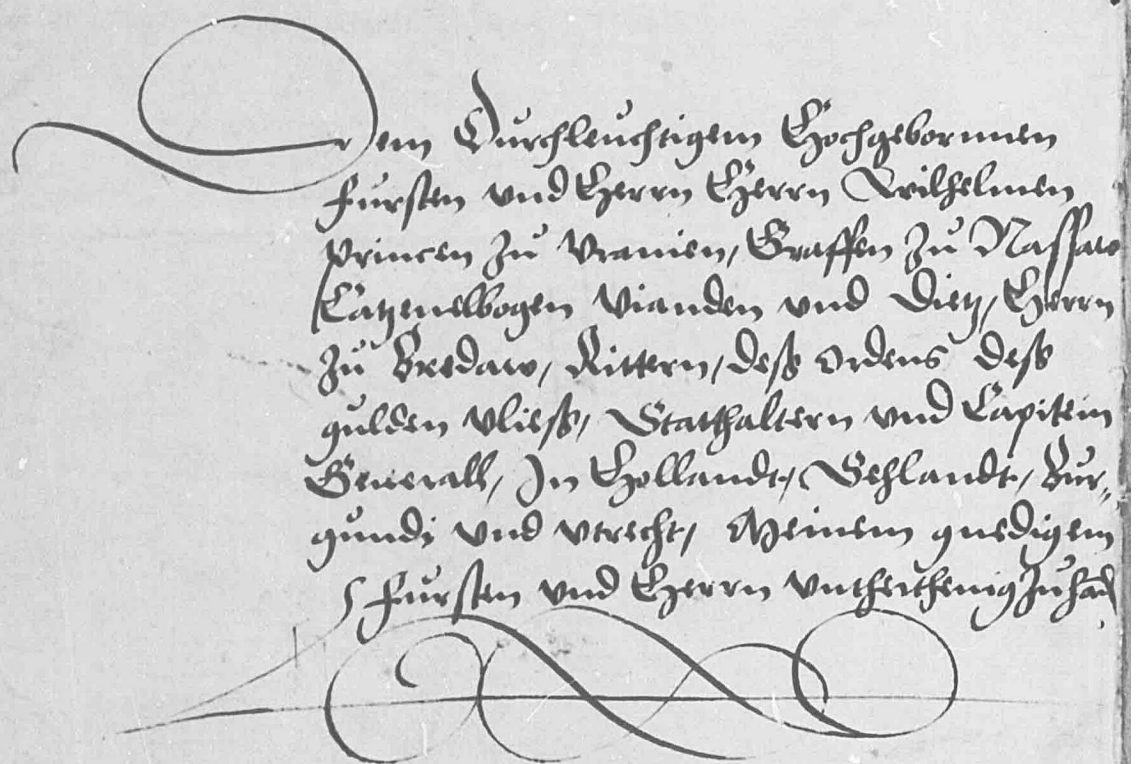 Dem Durchleuchtigem Hochgebornnen
Fursten vnd Herrn Herrn Wilhelmen
Princen zu Vranien, Graffen zu Nassaw
Catzenelbogen Vianden vnd Dietz, Herrn
zu Bredaw, Rittern, deß Ordens deß
gulden Vließ, Statthaltern vnd Capitein
Generall, In Hollandt, Sehlandt, Bur„
gundj vnd Vtrecht, Meinem gnedigem
Fursten vnd Herrn vntherthenig zu